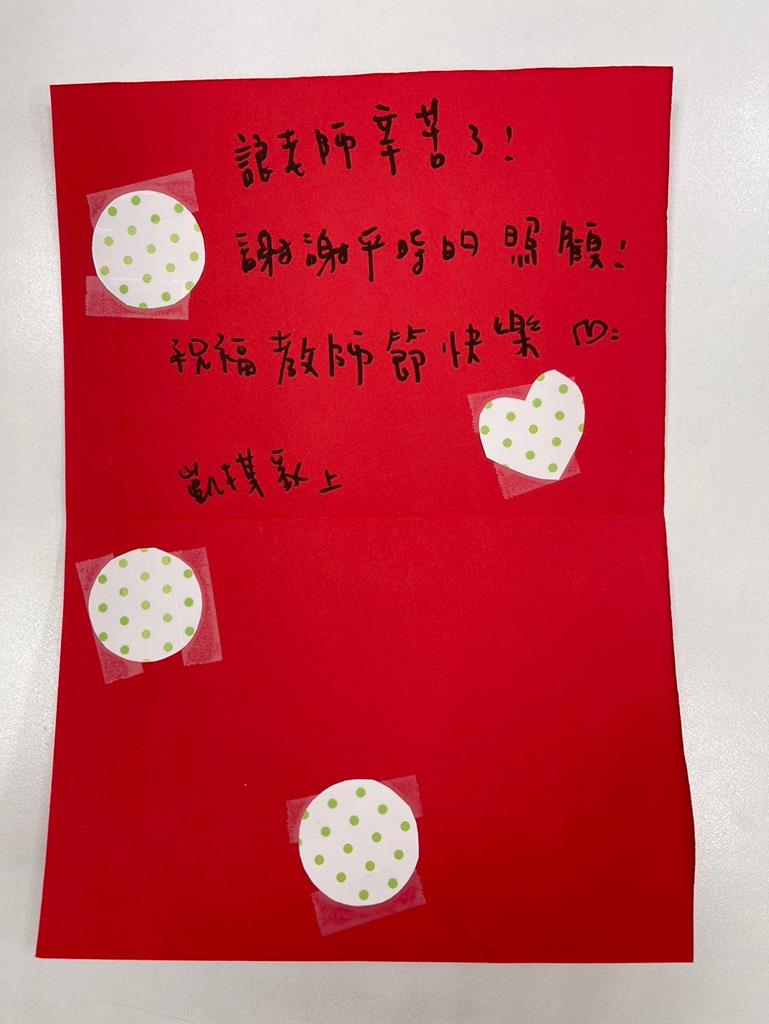 老師辛苦了!
謝謝平時的照顧!
祝福教師節快樂
凱 敬上